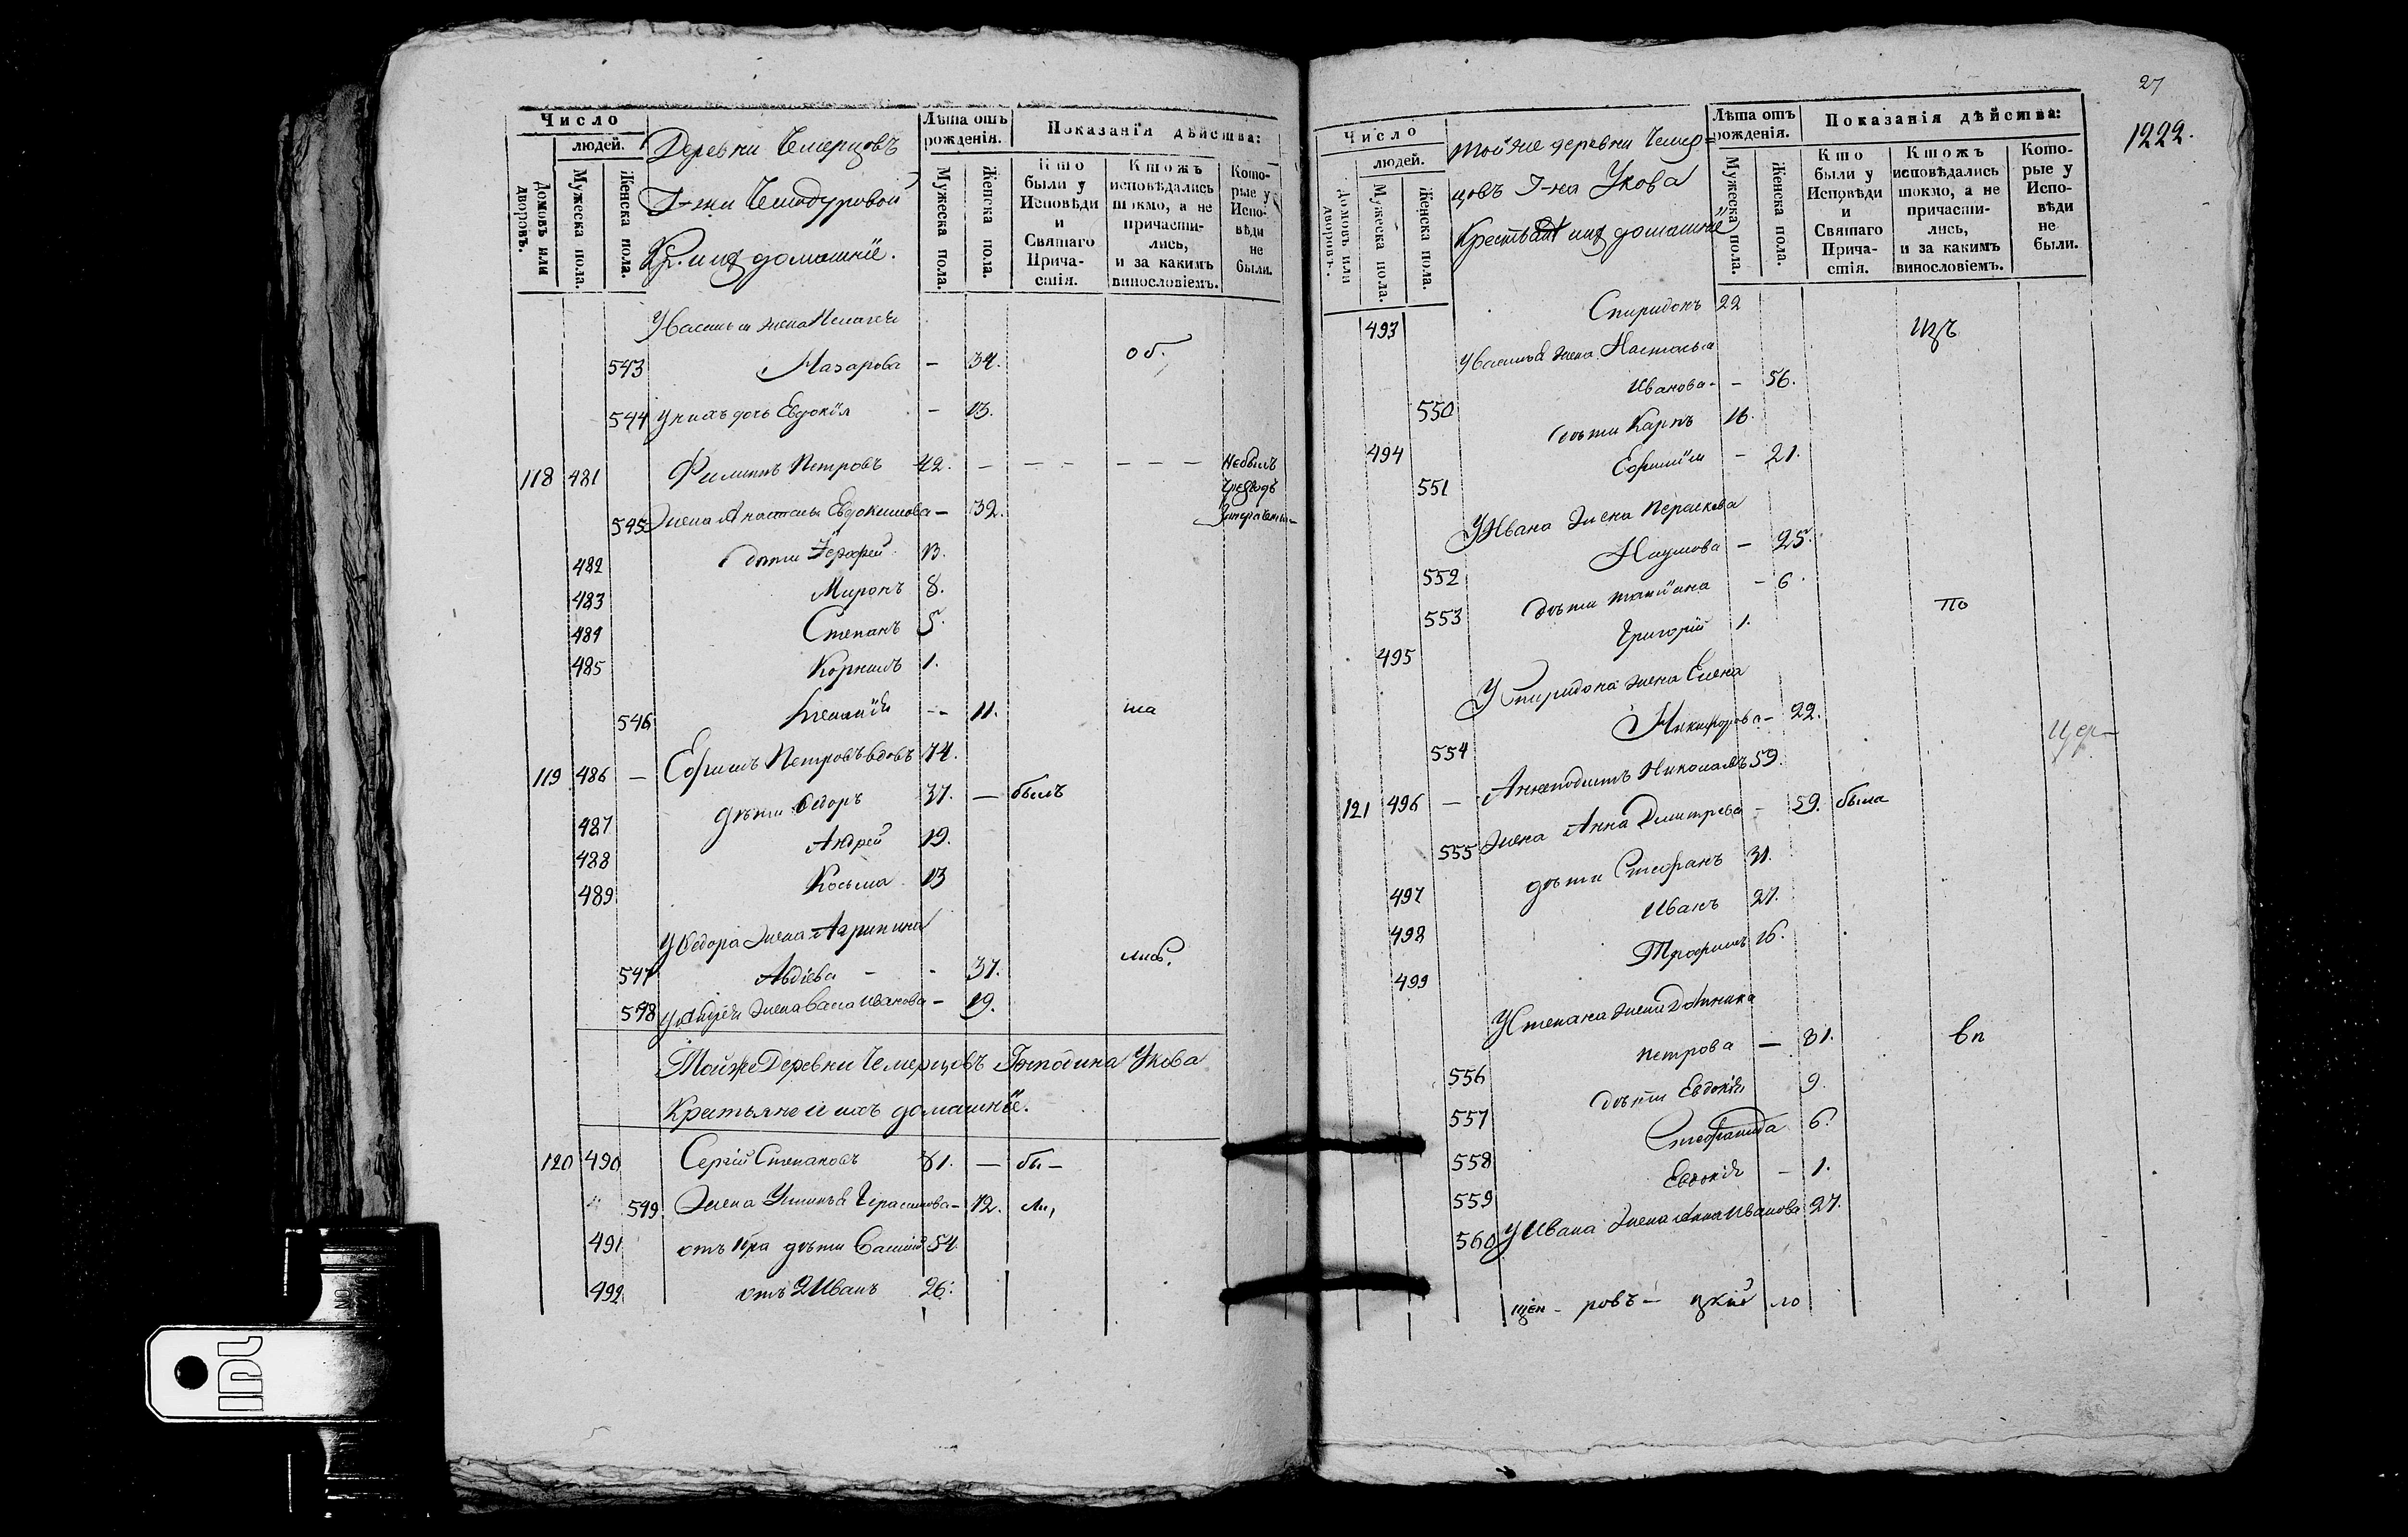 Число
людей.
Домовъ или дворовъ.
Мужеска пола.
Женска пола.
Деревни Чемерцовъ
Г-жи Чемодуровой
Кр. и их домашніе.
Лѣта отъ рожденія.
Мужеска пола.
Женска пола.
Показанія дѣйства:
Кто были у Исповѣди и Святаго Причастія.
Ктожъ исповѣдались токмо, а не причастились, и за какимъ винословіемъ.
Которые у Исповѣди не были.
У Василья жена Пелагея
543 Назарова – 34. об.
544 У нихъ дочь Евдокія – 13.
118 481 Филиппъ Петровъ 42. – – – – – – Небылъ
545 Жена Анастасья Евдокимова – 32.
482 дѣти Ерофей 13.
483 Миронъ 8.
484 Степанъ 5.
485 Корнилъ 1.
546 -- 11. ша
119 486 – Ефимъ Петровъ вдовъ 74.
487 дѣти Ѳедоръ 37. – былъ
488 Андрей 19.
489 Косьма 13
У Ѳедора жена Агрипина
547 Авдіева – - 37.
548 У Андрея жена Васа Иванова – 19.
Тойже Деревни Чемерцовъ Господина Укова
Крестьяне и ихъ домашніе.
120 490 Сергій Степановъ 81. – бы–
549 Жена Ульянья Герасимова – 72. ли,
491 отъ 1бра дѣти Василій 54
492 отъ 2 Иванъ 26.
27
1222.
Число
людей.
Домовъ или дворовъ.
Мужеска пола.
Женска пола.
той же деревни Чемер=
цовъ Г-на Укова
Крестьян их домашніе
Лѣта отъ рожденія.
Мужеска пола.
Женска пола.
Показанія дѣйства:
Кто были у Исповѣди и Святаго Причастія.
Ктожъ исповѣдались токмо, а не причастились, и за какимъ винословіемъ.
Которые у Исповѣди не были.
493 Спиридонъ 22
У Василья жена Настасья
550 Иванова - – 56.
494 дѣти Карпъ 16.
551 Ефимія – 21.
У Ивана жена Параскева
552 Наумова – 25.
553 дѣти Татіяна – 6.
495 Григорій 1. по
У Спиридона жена Елена
554 Никифорова – 22.
цер–
121 496 – Анемподистъ Николаевъ 59.
555 Жена Анна Дмитрева – 59. была
497 дѣти Стефанъ 31.
498 Иванъ 27.
499 Трофимъ 16.
У Степана жена Домника
556 Петрова – 31. вп
557 дѣти Евдокія 9.
558 Стефанида 6.
559 Евдокія – 1.
560 У Ивана жена Анна Иванова 27.
щен– ровъ– цкій ло